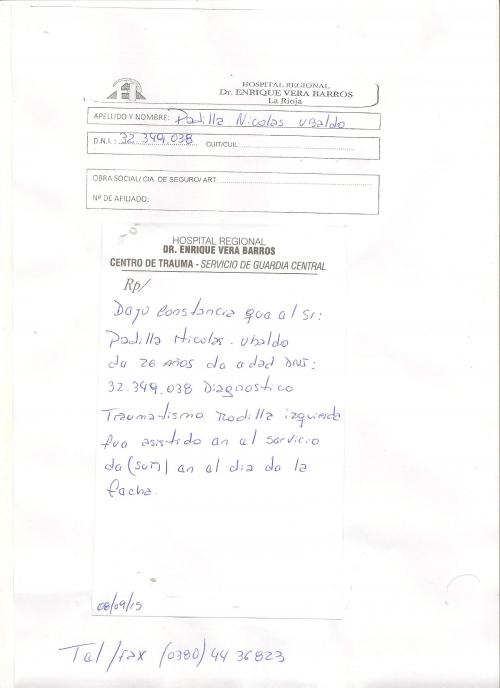 HOSPITAL REGIONAL
Dr. ENRIQUE VERA BARROS
La Rioja
APELLIDO Y NOMBRE: Padilla Nicolas Ubaldo
D.N.I.: 32.349.038 CUIT/CUIL:
OBRA SOCIAL/ CIA. DE SEGURO/ ART:
Nº DE AFILIADO:
HOSPITAL REGIONAL
DR. ENRIQUE VERA BARROS
CENTRO DE TRAUMA - SERVICIO DE GUARDIA CENTRAL
Rp/
Dajo Constancia que al Sr:
Padilla Nicolas. Ubaldo
da 26 Años da adad DNI:
32.349.038 Diagnostico
Traumatismo Rodilla izquierda
fua asistido an al servicio
da (sum) an al dia da la
facha.
08/09/15
Tal/fax (0380) 44 36823